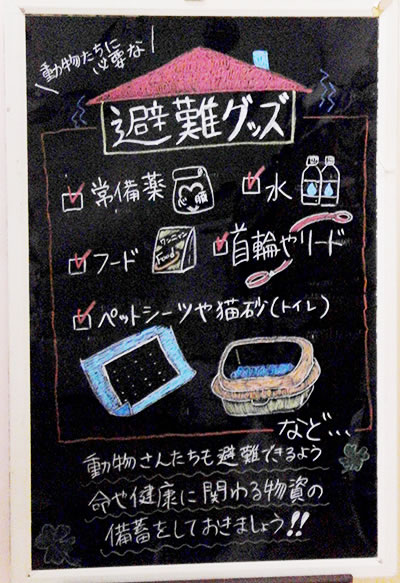 動物たちに
必要な
避難グッズ
常備薬
水
フード
ワンニャン
Food
首輪やリード
ペットシーツや猫砂(トイレ)
など…
動物さんたちも避難できるよう
命や健康に関わる物資の
備蓄をしておきましょう!!